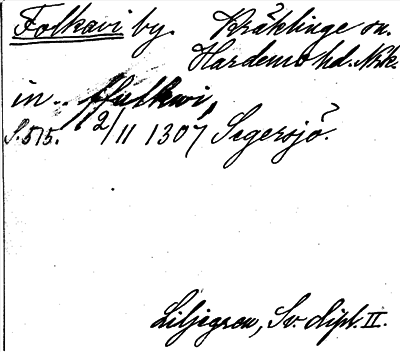 Folkavi by. Kräklinge sn.
Hardemo hd. Nrk.
in .. ffulkwi,
S. 515. 12/11 1307 Segersjö.
Liljegren, Sv. dipl. II.